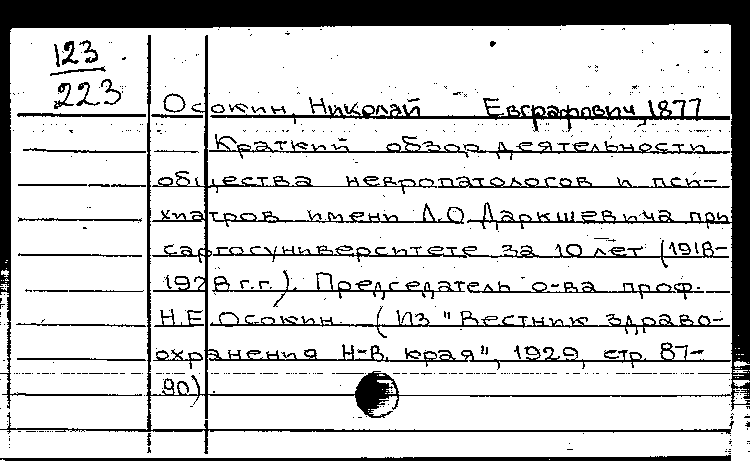 123
223
Осокин, Николай Евграфович, 1877
Краткий обзор деятельности
общества невропатологов и пси-
хиатров имени Л.О. Даркшевича при
саргосуниверситете за 10 лет (1918-
1928 г.г.). Председатель о-ва проф.
Н.Е. Осокин. (Из "Вестник здраво-
охранения Н-В. края", 1929, стр. 87-
90).